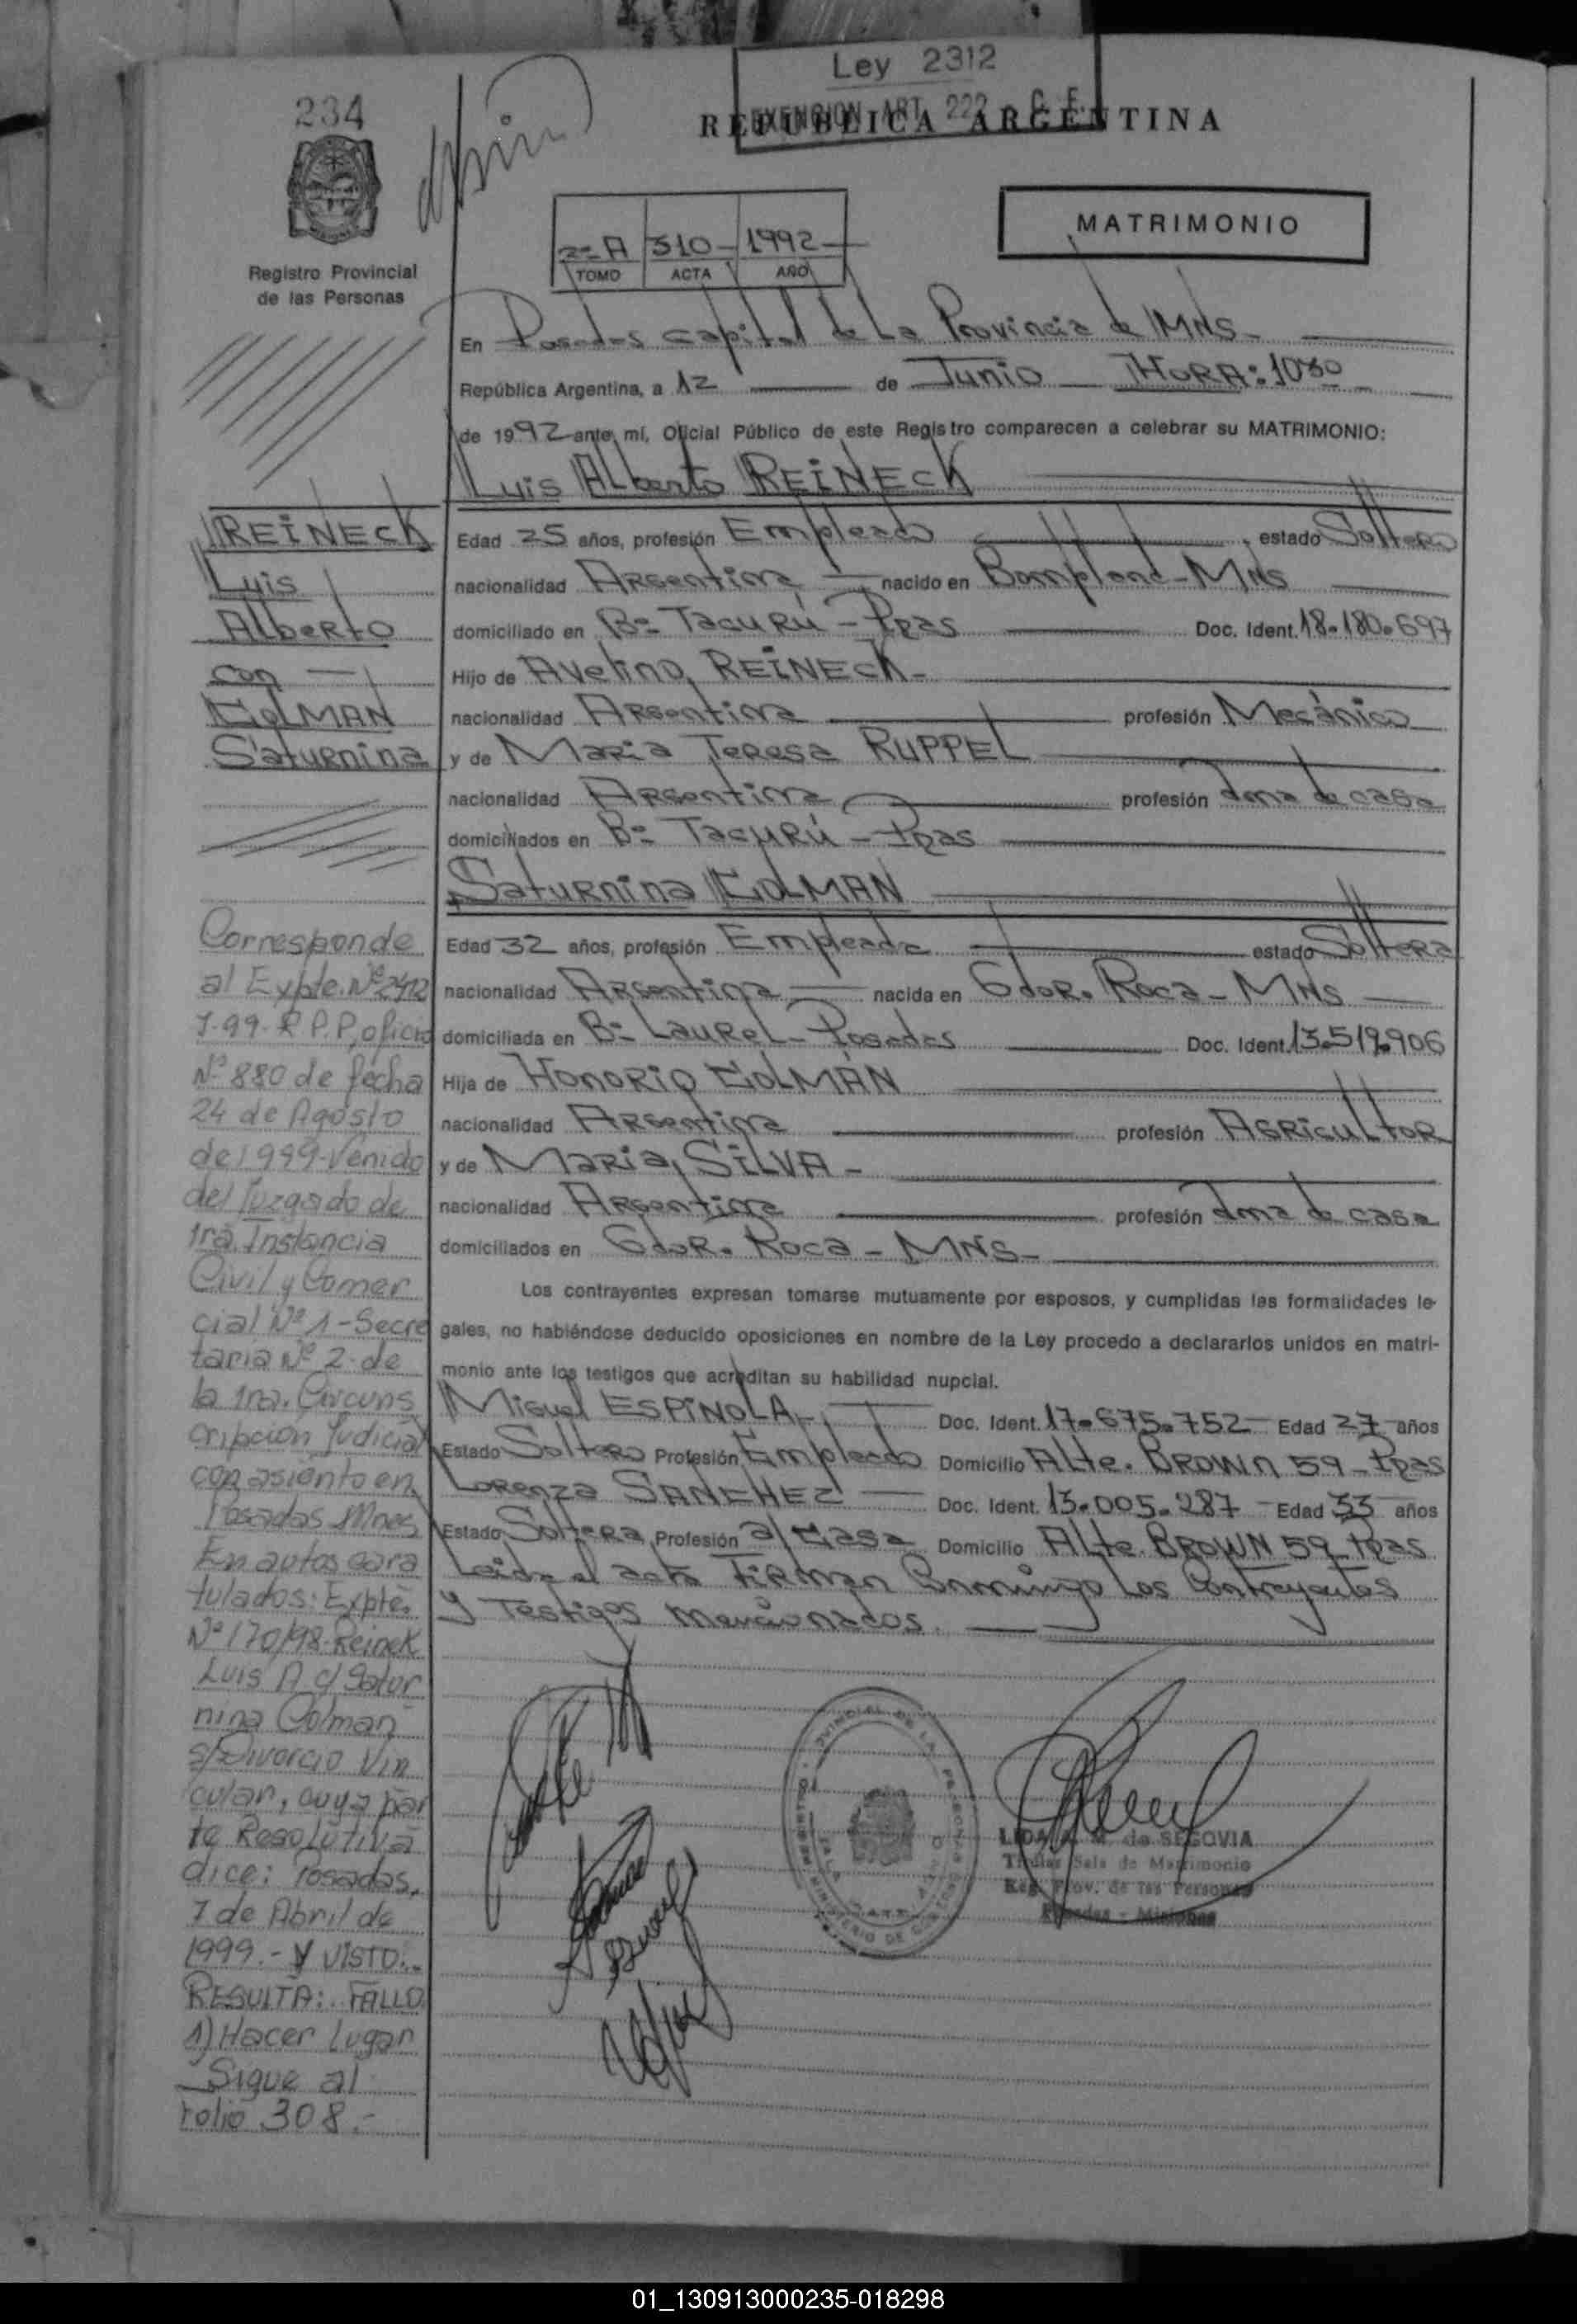 Ley 2312
EXENCION ART. 222 C. F.
234
REPUBLICA ARGENTINA
MATRIMONIO
2º A 310 - 1992
TOMO ACTA AÑO
Registro Provincial
de las Personas
En Posadas Capital de La Provincia de MNS
República Argentina, a 12 de Junio HORA: 1030
de 1992 ante mí, Oficial Público de este Registro comparecen a celebrar su MATRIMONIO:
Luis Alberto REINECK
Edad 25 años, profesión Empleado, estado Soltero
nacionalidad Argentina nacido en Bompland - MNS
domiciliado en Bº Tacurú - Ppas Doc. Ident. 18.180.697
Hijo de Avelino REINECK
nacionalidad Argentina profesión Mecánico
y de Maria Teresa RUPPEL
nacionalidad Argentina profesión Ama de casa
domiciliados en Bº Tacurú - Ppas
Saturnina COLMAN
Edad 32 años, profesión Empleada estado Soltera
nacionalidad Argentina nacida en Gdor. Roca - MNS
domiciliada en Bº Laurel - Posadas Doc. Ident. 13.519.906
Hija de Honorio COLMÁN
nacionalidad Argentina profesión Agricultor
y de Maria SILVA -
nacionalidad Argentina profesión Ama de casa
domiciliados en Gdor. Roca - MNS -
Los contrayentes expresan tomarse mutuamente por esposos, y cumplidas las formalidades le-
gales, no habiéndose deducido oposiciones en nombre de la Ley procedo a declararlos unidos en matri-
monio ante los testigos que acreditan su habilidad nupcial.
Miguel ESPINOLA Doc. Ident. 17.675.752 Edad 27 años
Estado Soltero Profesión Empleado Domicilio Alte. BROWN 59 - Ppas
Lorenza SANCHEZ Doc. Ident. 13.005.287 Edad 33 años
Estado Soltera Profesión a/ Casa Domicilio Alte. BROWN 59 Ppas
Leida el acta Firman Conmingo Los Contrayentes
y Testigos Mencionados.
LIDA A. M. de SEGOVIA
Titular Sala de Matrimonio
Reg. Prov. de las Personas
Posadas - Misiones
REINECK
Luis
Alberto
con
COLMAN
Saturnina
Corresponde
al Expte. Nº 2412
7-99- R.P.P, oficio
Nº 880 de fecha
24 de Agosto
de 1999 - Venido
del Juzgado de
1ra. Instancia
Civil y Comer
cial Nº 1 - Secre
taria Nº 2 - de
la 1ra. Circuns
cripcion Judicial
con asiento en
Posadas Mnes
En autos cara
tulados: Expte.
Nº 170/98 - Reinek
Luis A c/ Satur
nina Colman
s/Divorcio Vin
cular, cuya par
te Resolutiva
dice: Posadas,
7 de Abril de
1999. - Y VISTO:..
RESULTA: . FALLO
1) Hacer lugar
Sigue al
folio 308.-
01_130913000235-018298